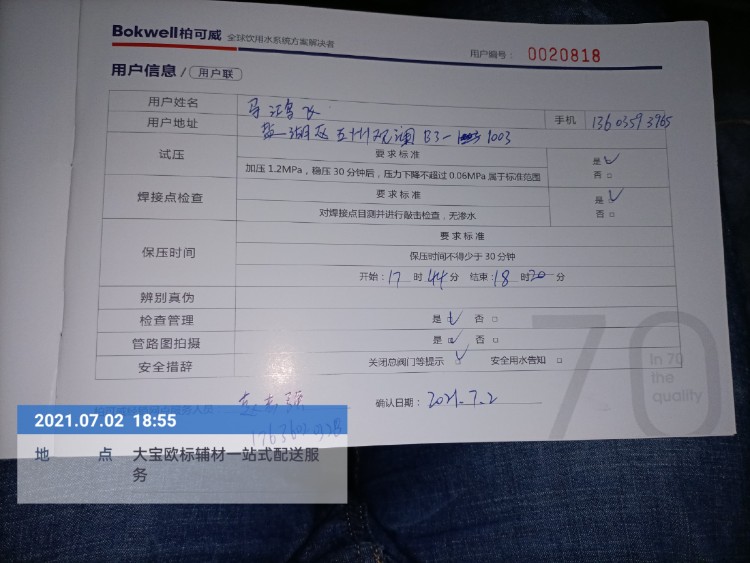 Bokwell柏可威 全球饮用水系统方案解决者
用户编号: 0020818
用户信息/用户联
用户姓名
用户地址 盐湖区五洲观澜B3-1003
手机 13603593965
试压
要求标准
加压1.2MPa,稳压30分钟后,压力下降不超过0.06MPa属于标准范围
是 ✓
否 □
焊接点检查
要求标准
对焊接点目测并进行敲击检查,无渗水
是 ✓
否 □
保压时间
要求标准
保压时间不得少于30分钟
开始:17时44分 结束:18时20分
辨别真伪
检查管理 是 ✓ 否 □
管路图拍摄 是 ✓ 否 □
安全措辞 关闭总阀门等提示 ✓ 安全用水告知 □
务人员
确认日期: 2021.7.2
70
In 70
the
quality
2021.07.02 18:55
地 点 大宝欧标辅材一站式配送服
务